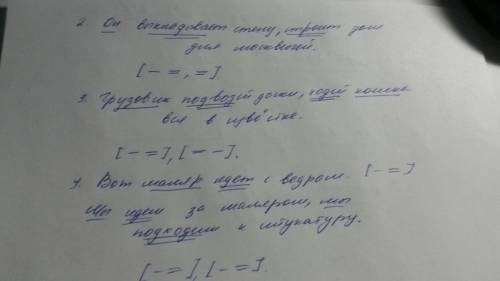 2. Он выкладывает стену, строит дом
для москвичей.
[– =, =].
3. Грузовик подвозит доски, ходит кошка
вся в извёстке.
[– =], [= –].
4. Вот маляр идет с ведром. [– =]
Мы идем за маляром, мы
подходим к штукатуру.
[– =], [– =].